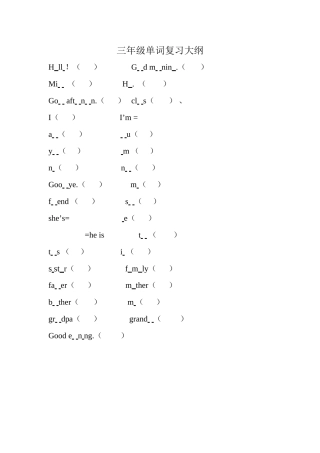 三年级单词复习大纲
H_ll_!（ ） G_ _d m_ _nin_.（ ）
Mi_ _ （ ） H_ .（ ）
Go_ _ aft_ _n_ _n.（ ） cl_ _s（ ） 、
I（ ） I’m =
a_ _（ ） _ _u（ ）
y_ _（ ） _m （ ）
n_（ ） n_ _（ ）
Goo_ _ye.（ ） m_（ ）
f_ _end （ ） s_ _（ ）
she’s= _e（ ）
=he is t_ _（ ）
t_ _s （ ） i_（ ）
s_st_ _r（ ） f_m_ly（ ）
fa_ _er（ ） m_ther（ ）
b_ _ther（ ） m_（ ）
gr_ _dpa（ ） grand_ _（ ）
Good e_ _n_ng.（ ）